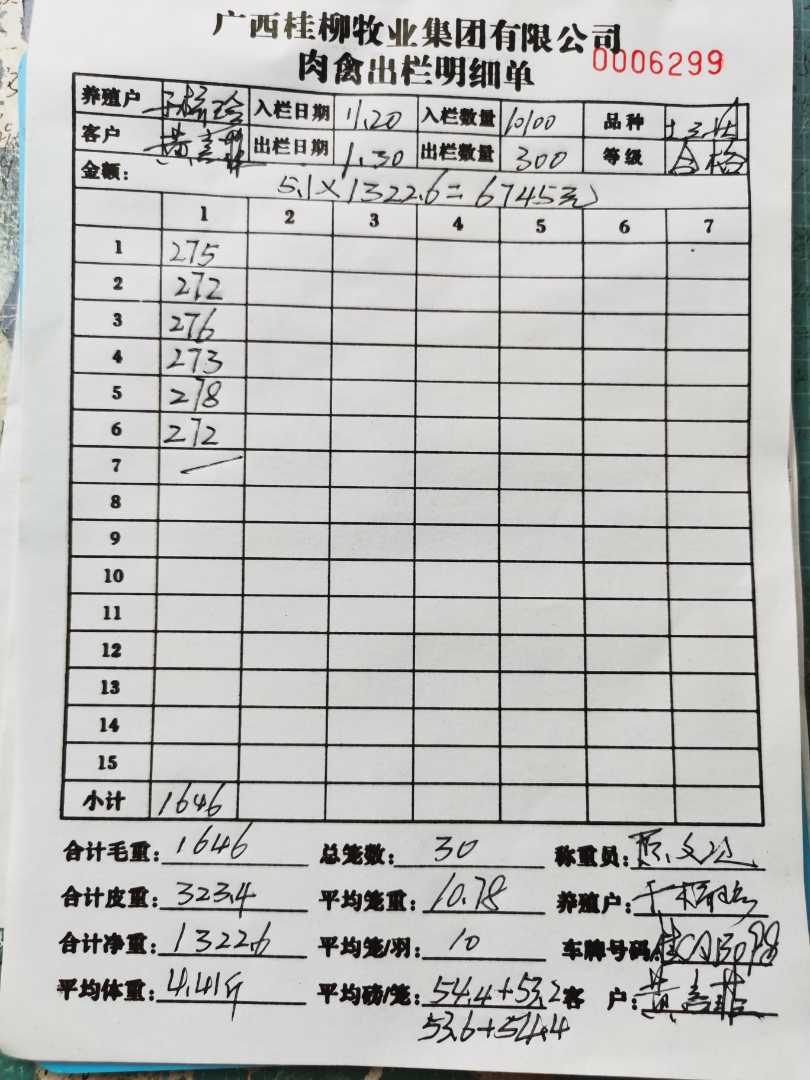 广西桂柳牧业集团有限公司
肉禽出栏明细单 0006299
养殖户 入栏日期 11.20 入栏数量 10100 品种
客户 出栏日期 1.30 出栏数量 300 等级 合格
金额: 5.1×1322.6=6745元
1 2 3 4 5 6 7
1 275
2 272
3 276
4 273
5 278
6 272
7
8
9
10
11
12
13
14
15
小计 1646
合计毛重: 1646 总笼数: 30 称重员:
合计皮重: 323.4 平均笼重: 10.78 养殖户:
合计净重: 1322.6 平均笼/羽: 10 车牌号码:
平均体重: 4.41斤 平均磅/笼: 54.4+53.2 客 户:
53.6+54.4